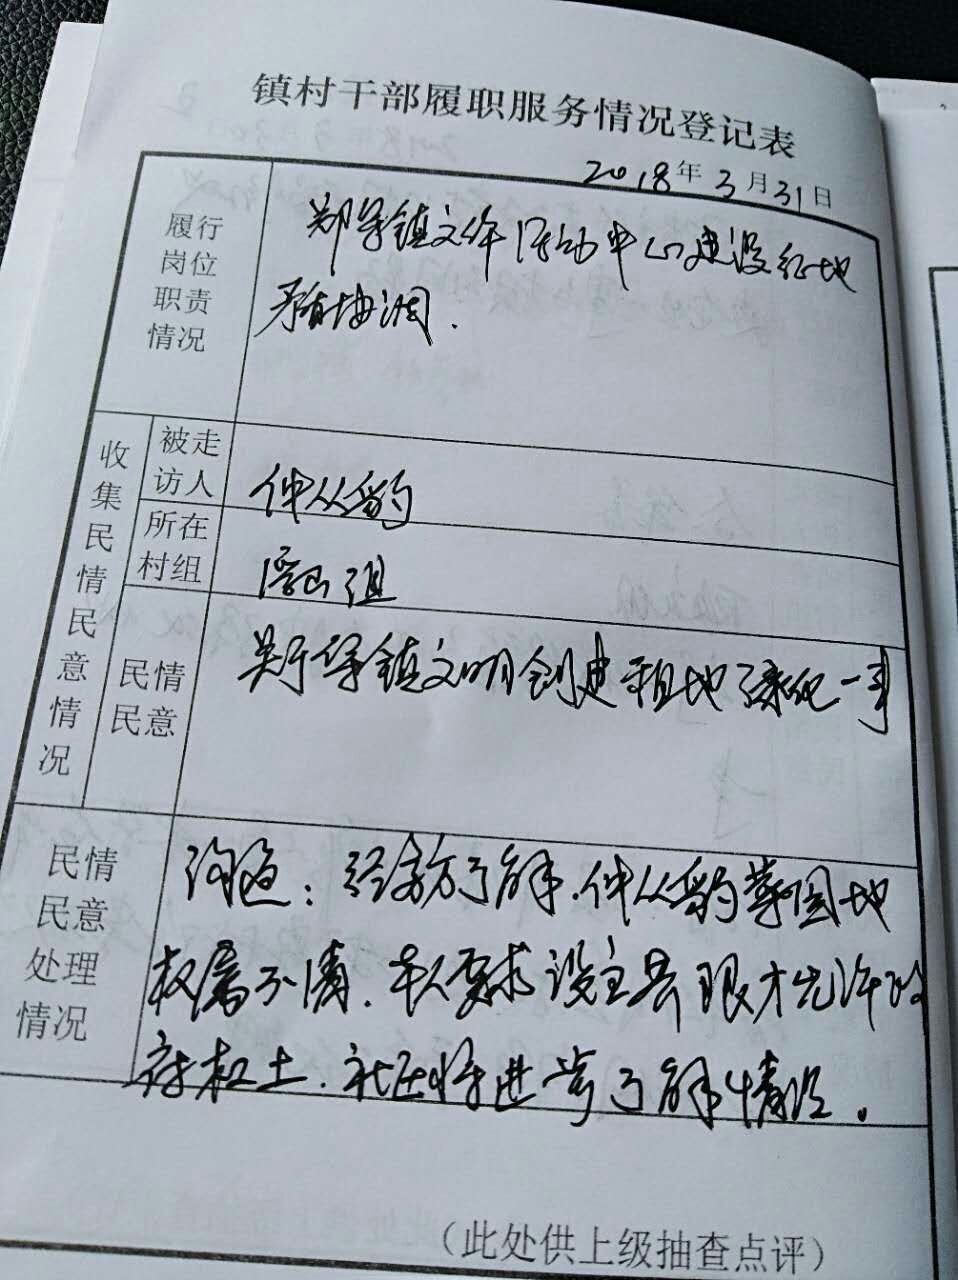 镇村干部履职服务情况登记表
2018年3月31日
履行
岗位
职责
情况
镇文体活动中心建设征地
矛盾协调.
收集民情民意情况
被走
访人
仲从豹
所在
村组
组
民情
民意
关于 镇文明创建租地 绿化一事
民情
民意
处理
情况
沟通：经 了解.仲从豹菜园地
权属不清.本人要求 才允许政
府 土.社区将进步了解情况。
（此处供上级抽查点评）